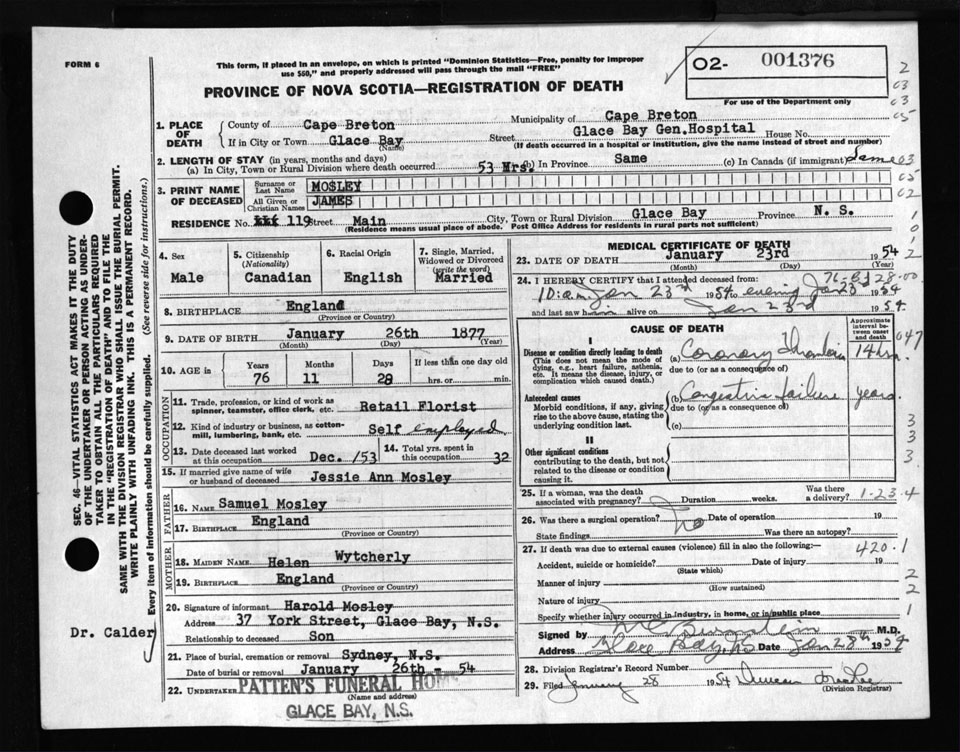 FORM 6
This form, if placed in an envelope, on which is printed "Dominion Statistics—Free, penalty for improper
use $50," and properly addressed will pass through the mail "FREE"
PROVINCE OF NOVA SCOTIA—REGISTRATION OF DEATH
O2- 001376
For use of the Department only
1. PLACE OF DEATH
County of Cape Breton Municipality of Cape Breton
If in City or Town Glace Bay (Name) Street Glace Bay Gen.Hospital House No.
(If death occurred in a hospital or institution, give the name instead of street and number)
2. LENGTH OF STAY (in years, months and days)
(a) In City, Town or Rural Division where death occurred 53 Hrs. (b) In Province Same (c) In Canada (if immigrant) Same
3. PRINT NAME OF DECEASED
Surname or Last Name MOSLEY
All Given or Christian Names JAMES
RESIDENCE No. 119 Street Main City, Town or Rural Division Glace Bay Province N. S.
(Residence means usual place of abode. Post Office Address for residents in rural parts not sufficient)
4. Sex Male
5. Citizenship (Nationality) Canadian
6. Racial Origin English
7. Single, Married, Widowed or Divorced (write the word) Married
8. BIRTHPLACE England
(Province or Country)
9. DATE OF BIRTH January 26th 1877
(Month) (Day) (Year)
10. AGE in Years 76 Months 11 Days 28 If less than one day old hrs. or min.
OCCUPATION
11. Trade, profession, or kind of work as spinner, teamster, office clerk, etc. Retail Florist
12. Kind of industry or business, as cotton-mill, lumbering, bank, etc. Self employed
13. Date deceased last worked at this occupation Dec. /53
14. Total yrs. spent in this occupation 32
15. If married give name of wife or husband of deceased Jessie Ann Mosley
FATHER
16. NAME Samuel Mosley
17. BIRTHPLACE England
(Province or Country)
MOTHER
18. MAIDEN NAME Helen Wytcherly
19. BIRTHPLACE England
(Province or Country)
20. Signature of informant Harold Mosley
Address 37 York Street, Glace Bay, N.S.
Relationship to deceased Son
21. Place of burial, cremation or removal Sydney, N.S.
Date of burial or removal January 26th - 54
22. UNDERTAKER PATTEN'S FUNERAL HOME
(Name and address)
GLACE BAY, N.S.
MEDICAL CERTIFICATE OF DEATH
23. DATE OF DEATH January 23rd 1954
(Month) (Day) (Year)
24. I HEREBY CERTIFY that I attended deceased from:
Jan 23rd 1954 to evening Jan 23 1954
and last saw him alive on 1954.
CAUSE OF DEATH
Approximate interval between onset and death
I
Disease or condition directly leading to death
(This does not mean the mode of dying, e.g., heart failure, asthenia, etc. It means the disease, injury, or complication which caused death.)
(a) Coronary Thrombosis 14 hrs.
due to (or as a consequence of)
Antecedent causes
Morbid conditions, if any, giving rise to the above cause, stating the underlying condition last.
(b) Congestive failure years.
due to (or as a consequence of)
(c)
II
Other significant conditions
contributing to the death, but not related to the disease or condition causing it.
25. If a woman, was the death associated with pregnancy? Duration weeks. Was there a delivery? 1-23-4
26. Was there a surgical operation? no Date of operation 19
State findings Was there an autopsy?
27. If death was due to external causes (violence) fill in also the following:— 420.1
Accident, suicide or homicide? Date of injury 19
(State which)
Manner of injury
(How sustained)
Nature of injury
Specify whether injury occurred in industry, in home, or in public place
Signed by M.D.
Address Glace Bay, NS Date Jan 28th 1954
28. Division Registrar's Record Number
29. Filed January 28 1954 Duncan
(Division Registrar)
SEC. 46—VITAL STATISTICS ACT MAKES IT THE DUTY
OF THE UNDERTAKER OR PERSON ACTING AS UNDER-
TAKER TO OBTAIN ALL THE PARTICULARS REQUIRED
IN THE "REGISTRATION OF DEATH" AND TO FILE THE
SAME WITH THE DIVISION REGISTRAR WHO SHALL ISSUE THE BURIAL PERMIT.
WRITE PLAINLY WITH UNFADING INK. THIS IS A PERMANENT RECORD.
Every item of information should be carefully supplied. (See reverse side for instructions.)
Dr. Calder